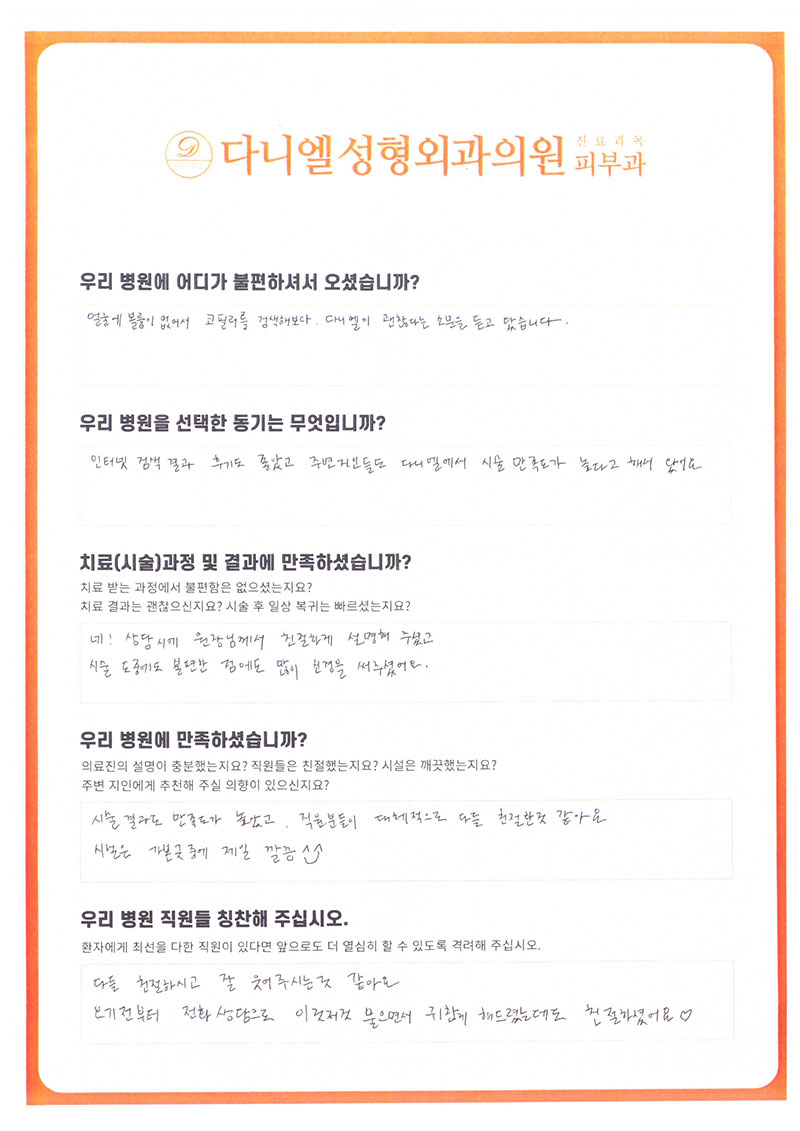 다니엘성형외과의원 진료과목 피부과
우리 병원에 어디가 불편하셔서 오셨습니까?
얼굴에 볼륨이 없어서 코필러를 검색해보다. 다니엘이 괜찮다는 소문을 듣고 왔습니다.
우리 병원을 선택한 동기는 무엇입니까?
인터넷 검색 결과 후기도 좋았고 주변지인들도 다니엘에서 시술 만족도가 높다고 해서 왔어요
치료(시술)과정 및 결과에 만족하셨습니까?
치료 받는 과정에서 불편함은 없으셨는지요?
치료 결과는 괜찮으신지요? 시술 후 일상 복귀는 빠르셨는지요?
네! 상담시에 원장님께서 친절하게 설명해 주셨고
시술 도중에도 불편한 점에도 많이 신경을 써주셨어요.
우리 병원에 만족하셨습니까?
의료진의 설명이 충분했는지요? 직원들은 친절했는지요? 시설은 깨끗했는지요?
주변 지인에게 추천해 주실 의향이 있으신지요?
시술결과도 만족도가 높았고, 직원분들이 대체적으로 다들 친절한것 같아요
시설은 가본곳중에 제일 깔끔
우리 병원 직원들 칭찬해 주십시오.
환자에게 최선을 다한 직원이 있다면 앞으로도 더 열심히 할 수 있도록 격려해 주십시오.
다들 친절하시고 잘 웃어주시는것 같아요
오기전부터 전화상담으로 이것저것 물으면서 귀찮게 해드렸는데도 친절하셨어요♡